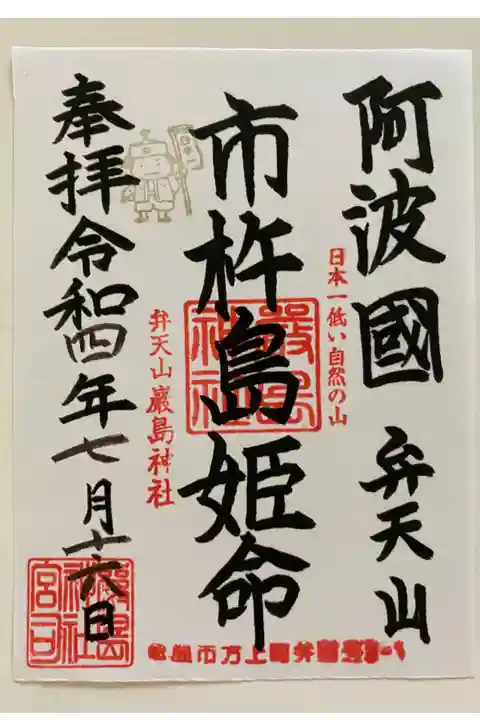 阿波國 弁天山
日本一低い自然の山
市杵島姫命
嚴島神社
弁天山厳島神社
奉拝令和四年七月十六日
嚴島神社宮司